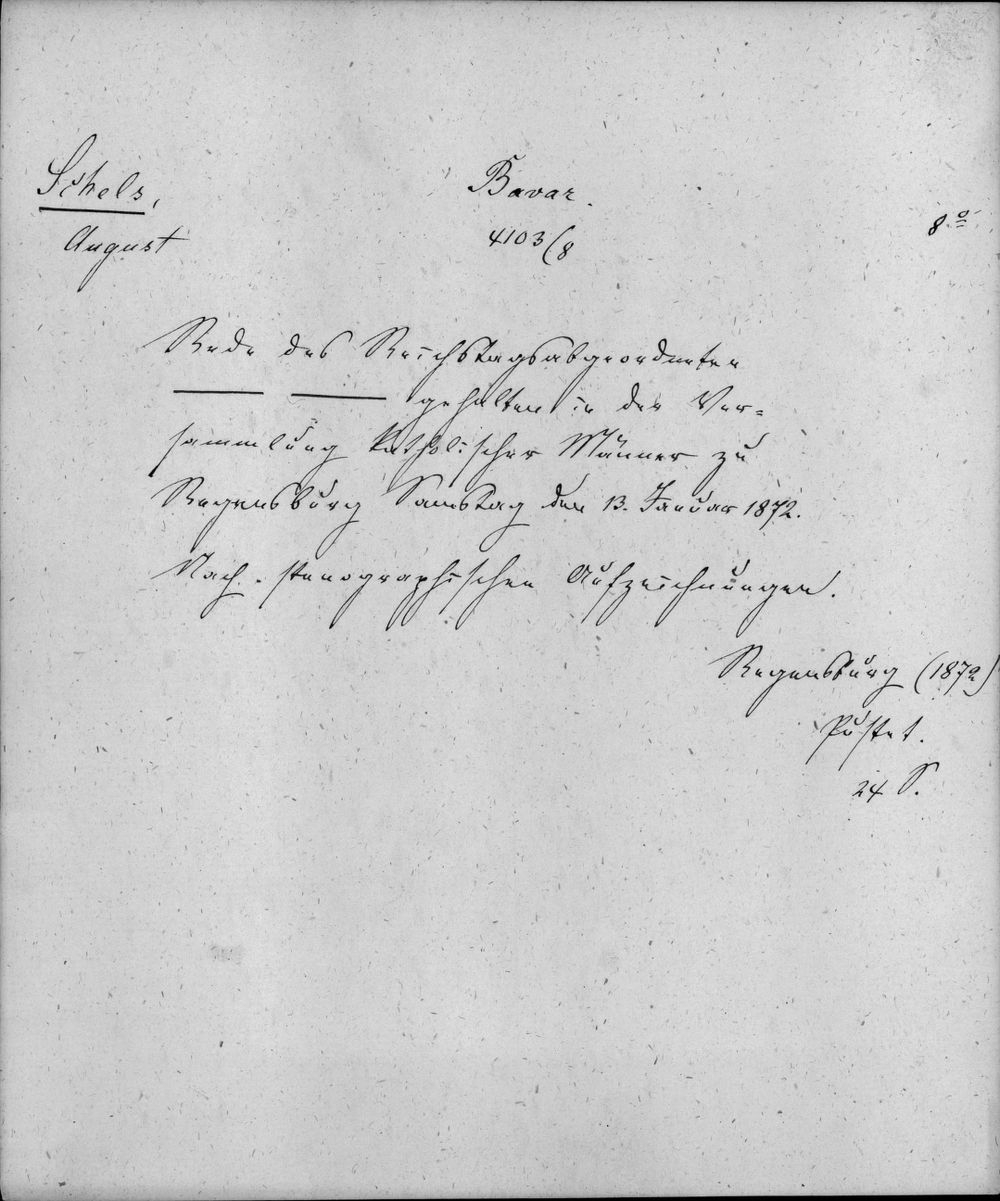 Schels,
August
Bavar.
4103/8
8o
Rede des Reichstagsabgeordneten
—— —— gehalten in der Ver=
sammlung katholischer Männer zu
Regensburg Samstag den 13. Januar 1872.
Nach stenographischen Aufzeichnungen.
Regensburg (1872)
Pustet.
24 S.